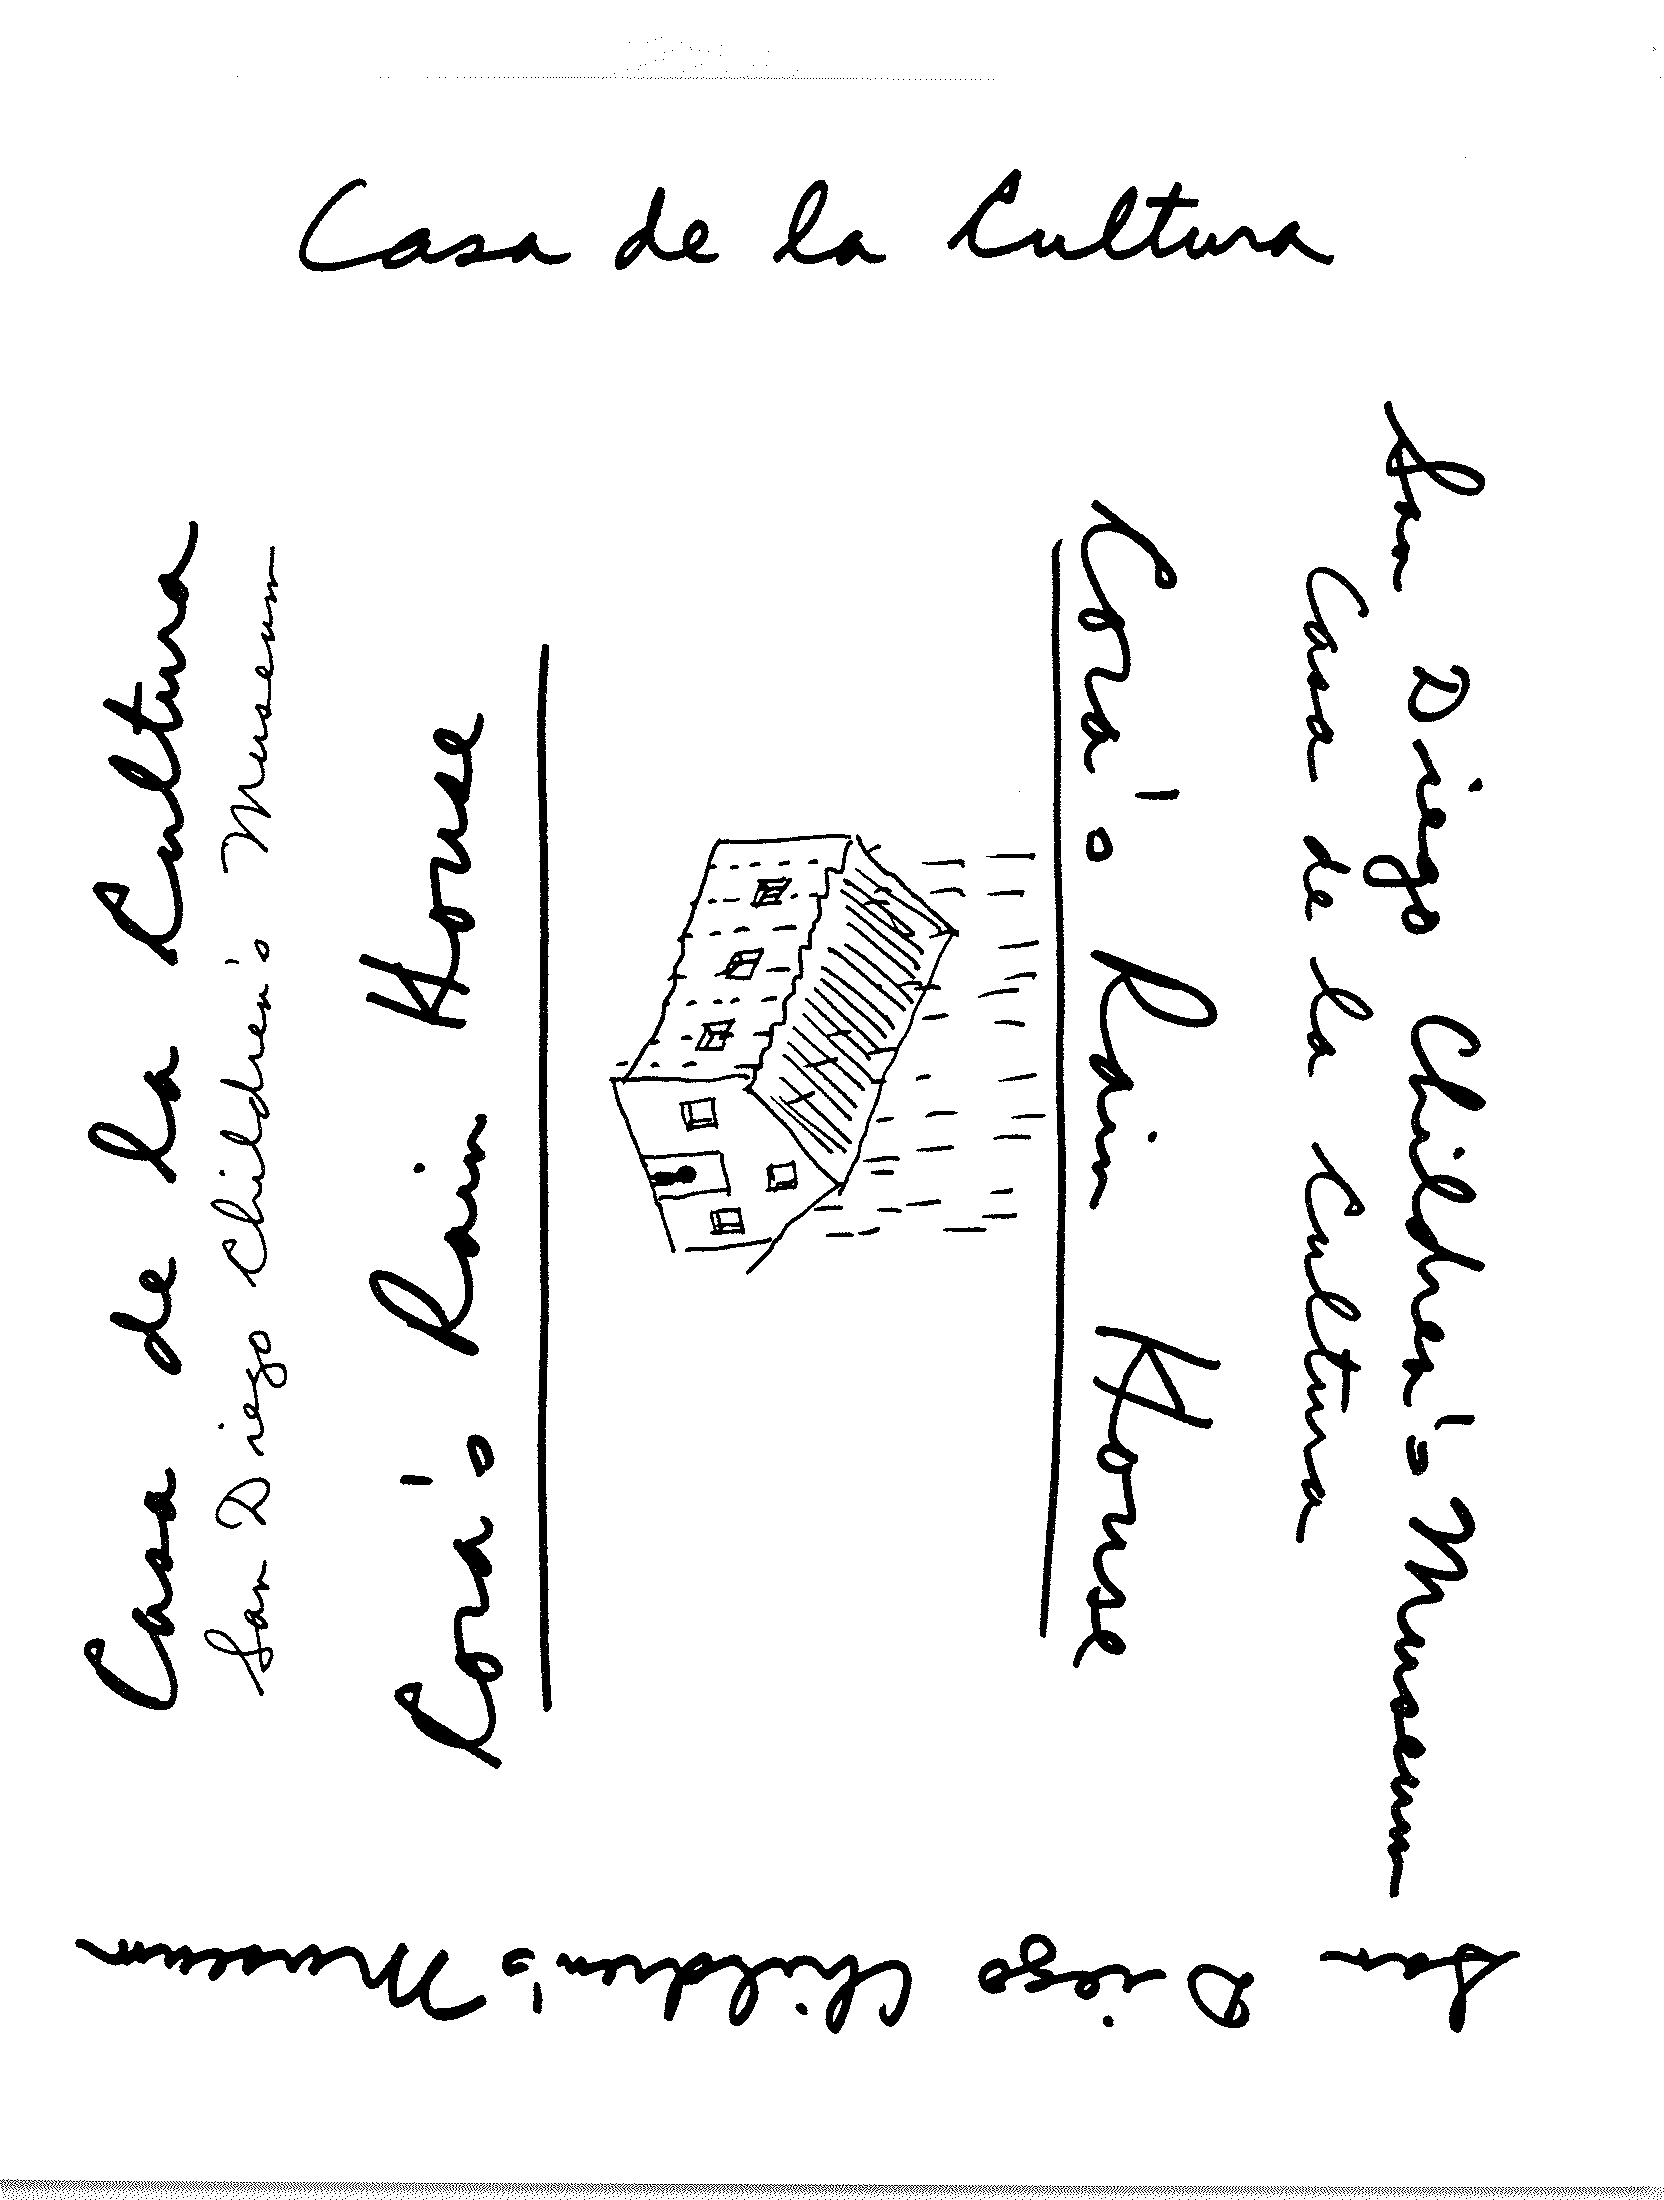 Casa de la Cultura
Casa de la Cultura
San Diego Children's Museum
Cora's Rain House
Cora's Rain House
Casa de la Cultura
San Diego Children's Museum
San Diego Children's Museum